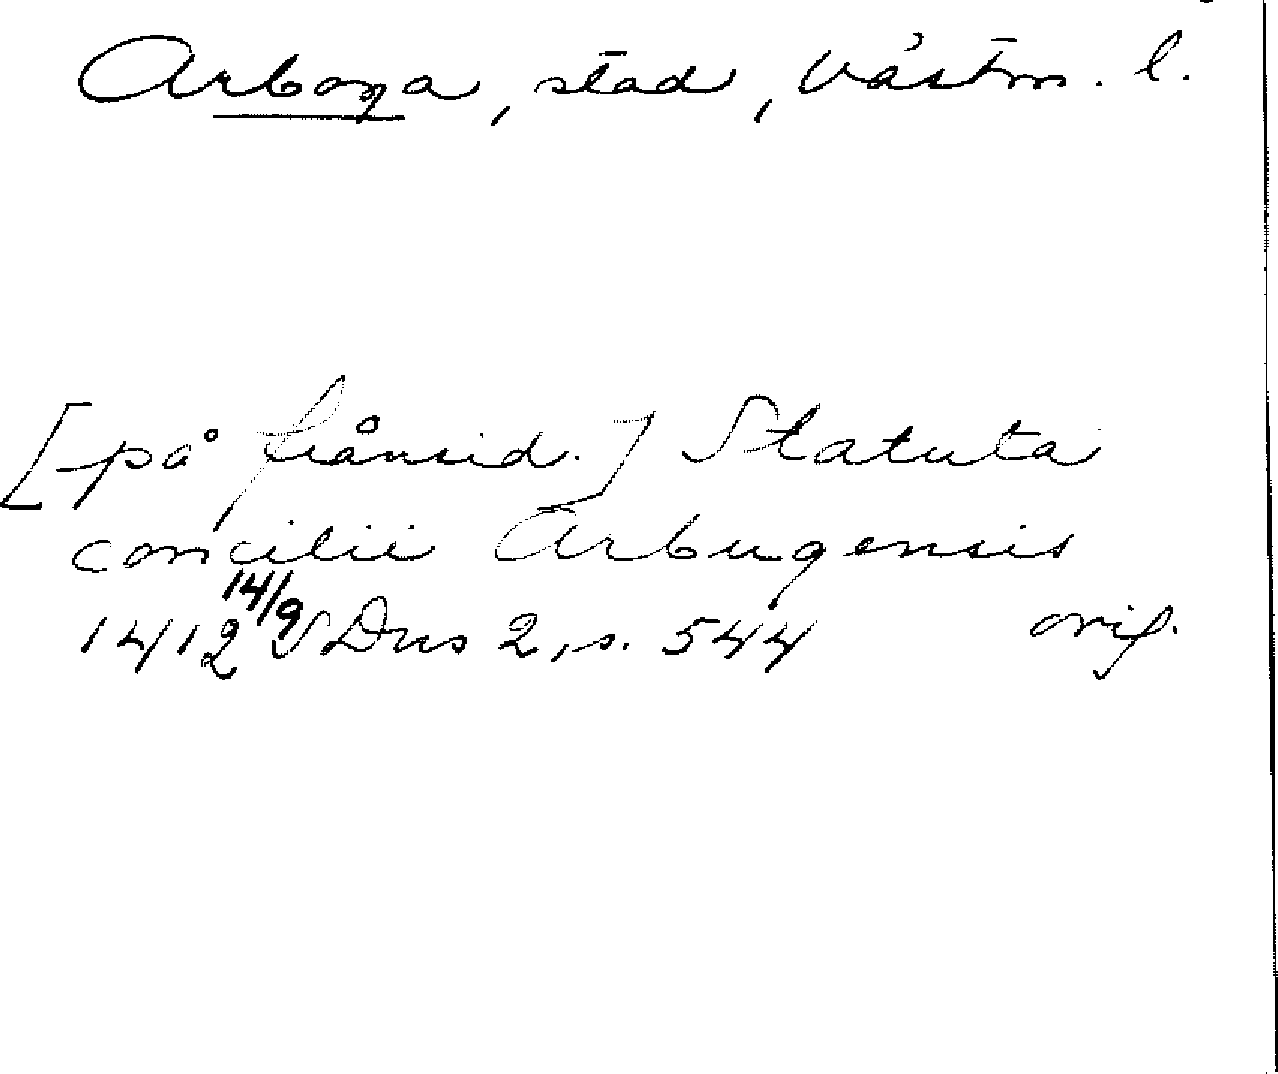 Arboga, stad, Västm. l.
[på frånsid.] Statuta
concilii Arbugensis
1412 14/9 SDns 2, s. 544 orig.